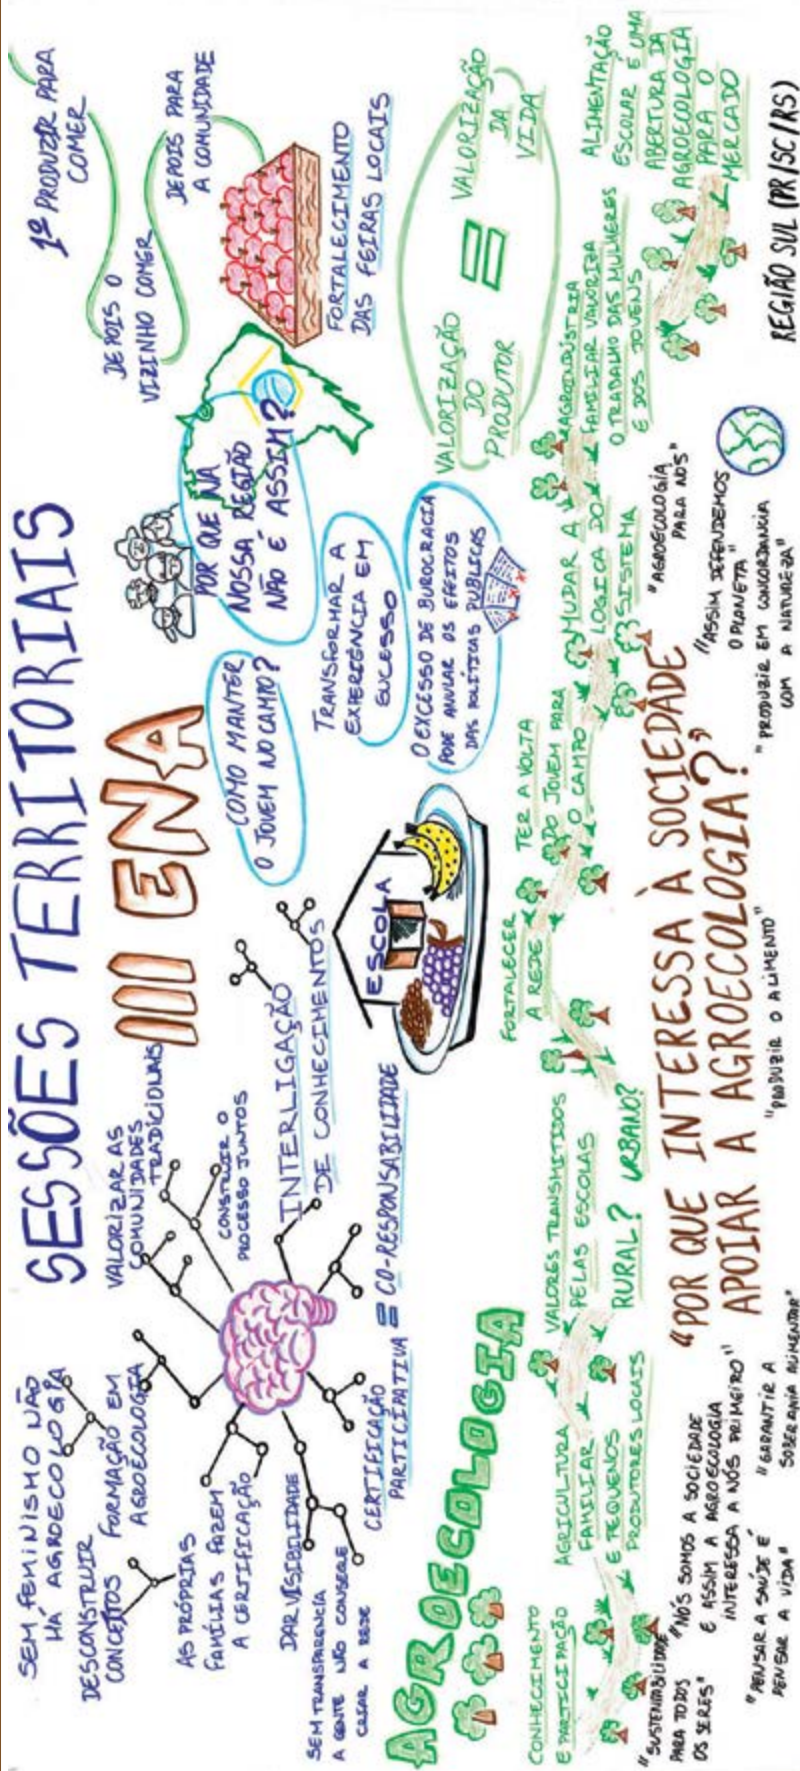 SESSÕES TERRITORIAIS
III ENA
SEM FEMINISMO NÃO
HÁ AGROECOLOGIA
DESCONSTRUIR
CONCEITOS
FORMAÇÃO EM
AGROECOLOGIA
AS PRÓPRIAS
FAMÍLIAS FAZEM
A CERTIFICAÇÃO
DAR VISIBILIDADE
SEM TRANSPARENCIA
A GENTE NÃO CONSEGUE
CRIAR A REDE
VALORIZAR AS
COMUNIDADES
TRADICIONAIS
CONSTRUIR O
PROCESSO JUNTOS
INTERLIGAÇÃO
DE CONHECIMENTOS
CERTIFICAÇÃO
PARTICIPATIVA = CO-RESPONSABILIDADE
ESCOLA
COMO MANTER
O JOVEM NO CAMPO?
POR QUE NA
NOSSA REGIÃO
NÃO É ASSIM?
TRANSFORMAR A
EXPERIÊNCIA EM
SUCESSO
O EXCESSO DE BUROCRACIA
PODE ANULAR OS EFEITOS
DAS POLÍTICAS PÚBLICAS
1º PRODUZIR PARA
COMER
DEPOIS O
VIZINHO COMER
DEPOIS PARA
A COMUNIDADE
FORTALECIMENTO
DAS FEIRAS LOCAIS
VALORIZAÇÃO
DO
PRODUTOR
=
VALORIZAÇÃO
DA
VIDA
AGROECOLOGIA
CONHECIMENTO
E PARTICIPAÇÃO
AGRICULTURA
FAMILIAR
E PEQUENOS
PRODUTORES LOCAIS
VALORES TRANSMITIDOS
PELAS ESCOLAS
RURAL? URBANO?
FORTALECER
A REDE
TER A VOLTA
DO JOVEM PARA
O CAMPO
MUDAR A
LOGICA DO
SISTEMA
AGROINDÚSTRIA
FAMILIAR VALORIZA
O TRABALHO DAS MULHERES
E DOS JOVENS
ALIMENTAÇÃO
ESCOLAR É UMA
ABERTURA DA
AGROECOLOGIA
PARA O
MERCADO
"POR QUE INTERESSA À SOCIEDADE
APOIAR A AGROECOLOGIA?"
"SUSTENTABILIDADE
PARA TODOS
OS SERES"
"NÓS SOMOS A SOCIEDADE
E ASSIM A AGROECOLOGIA
INTERESSA A NÓS PRIMEIRO"
"PENSAR A SAÚDE É
PENSAR A VIDA"
"GARANTIR A
SOBERANIA ALIMENTAR"
"PRODUZIR O ALIMENTO"
"AGROECOLOGIA
PARA NÓS"
"ASSIM DEFENDEMOS
O PLANETA"
"PRODUZIR EM CONCORDANCIA
COM A NATUREZA"
REGIÃO SUL (PR/SC/RS)